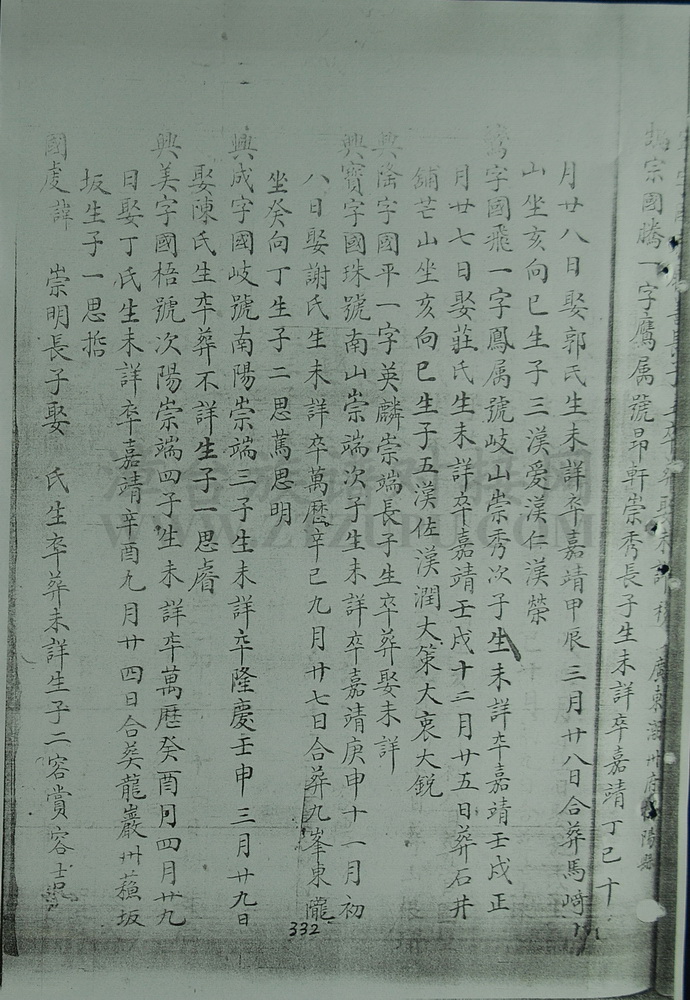 廣東
宗國騰一字鷹屬號昻軒崇秀長子生未詳卒嘉靖丁巳十
月廿八日娶郭氏生未詳卒嘉靖甲辰三月廿八日合葬馬崎
山坐亥向巳生子三漢愛漢仁漢榮
字國飛一字鳳屬號岐山崇秀次子生未詳卒嘉靖壬戌正
月廿七日娶莊氏生未詳卒嘉靖壬戌十二月廿五日葬石井
鋪芒山坐亥向巳生子五漢佐漢潤大策大衷大銳
興隆字國平一字英麟崇端長子生卒葬娶未詳
興寶字國珠號南山崇端次子生未詳卒嘉靖庚申十一月初
八日娶謝氏生未詳卒萬曆辛巳九月廿七日合葬九峯東隴
坐癸向丁生子二思萬思明
興成字國岐號南陽崇端三子生未詳卒隆慶壬申三月廿九日
娶陳氏生卒葬不詳生子一思睿
興美字國梧號次陽崇端四子生未詳卒萬歷癸酉月四月廿九
日娶丁氏生未詳卒嘉靖辛酉九月廿四日合葬龍巖州蘓坂
坂生子一思哲
國虔諱 崇明長子娶 氏生卒葬未詳生子二容賞容
332
WWW.ZTZUPU.COM